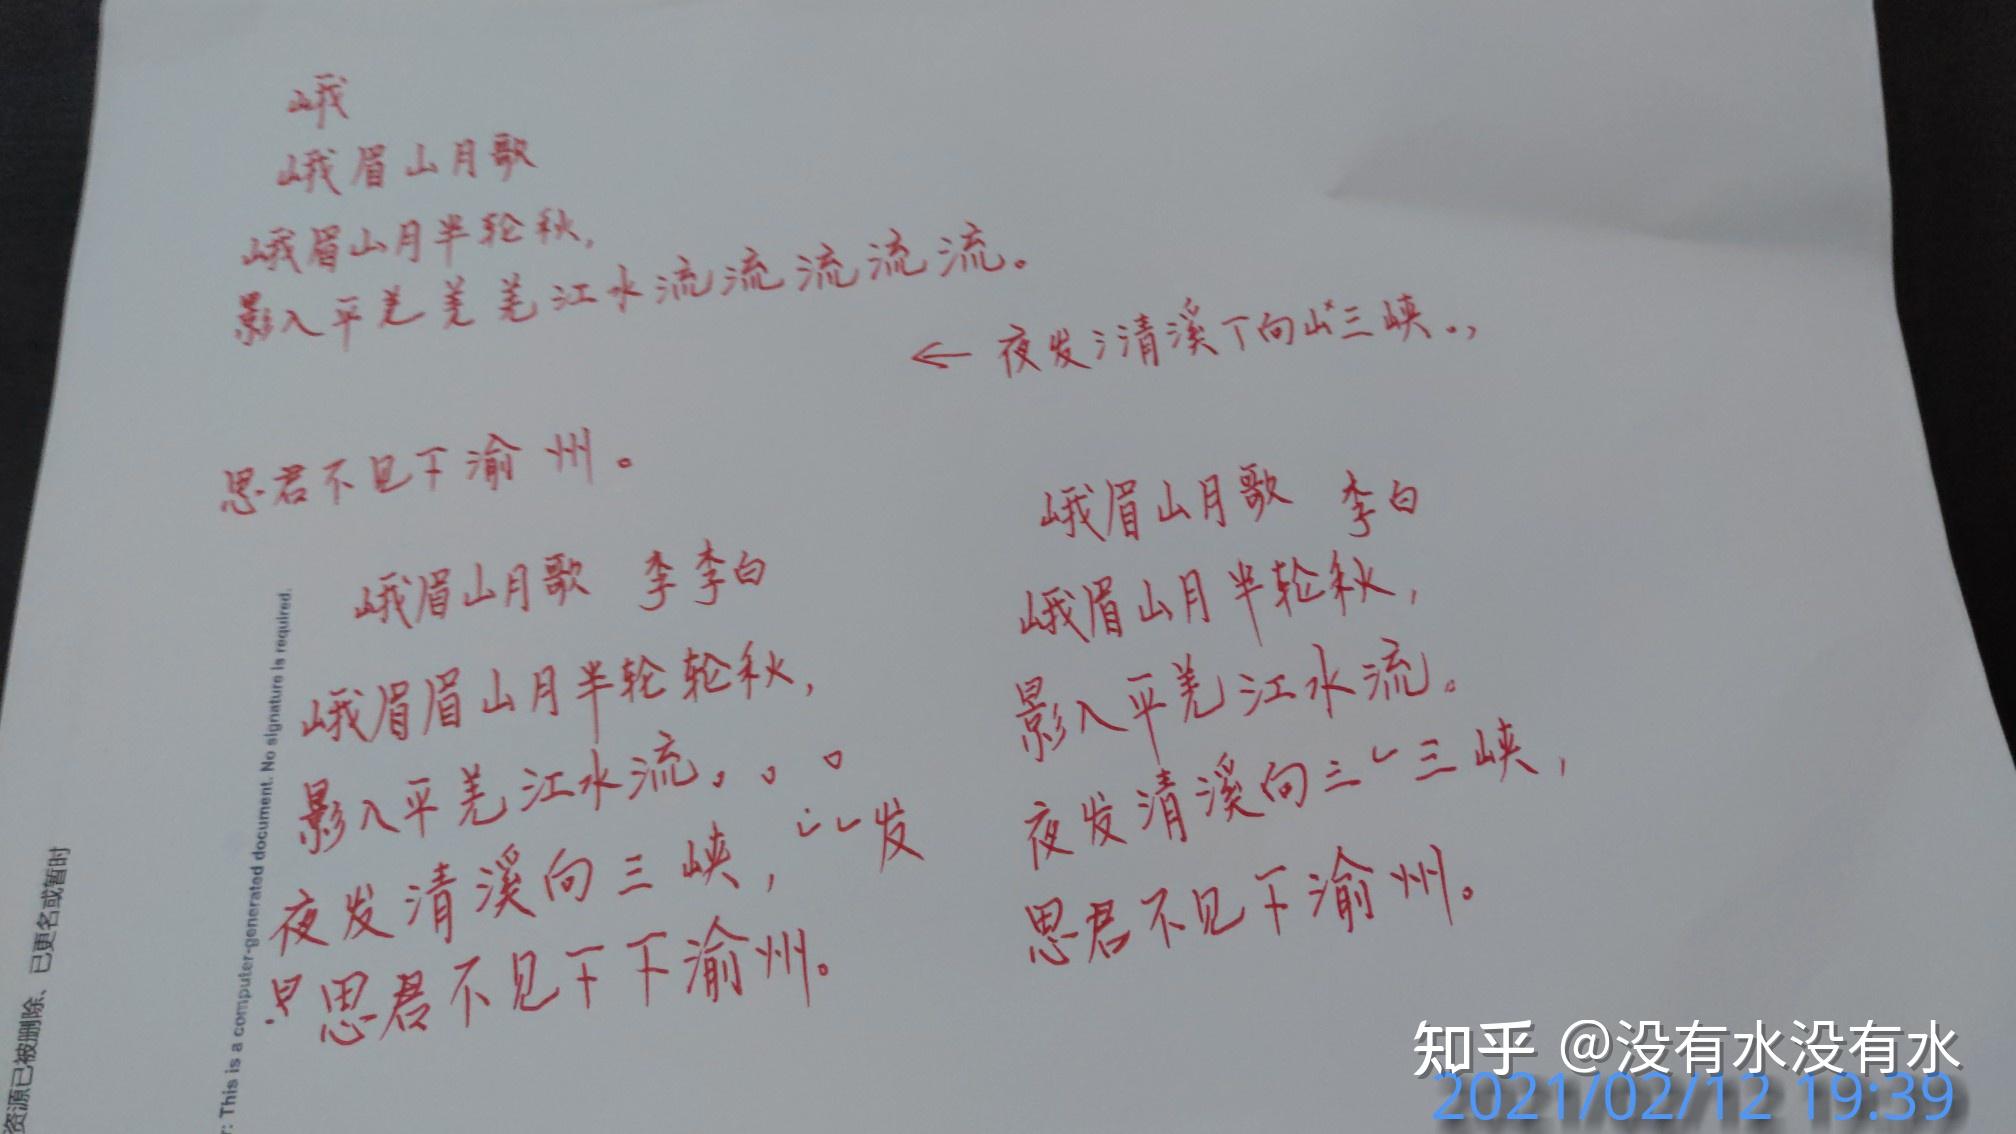 峨
峨眉山月歌
峨眉山月半轮秋,
影入平羌羌羌江水流流流流流。
← 夜发氵清溪丅向山三峡。,
思君不见下渝州。
峨眉山月歌 李李白
峨眉眉山月半轮轮秋,
影入平羌江水流。。。
夜发清溪向三峡, 发
思君不见下下渝州。
峨眉山月歌 李白
峨眉山月半轮秋,
影入平羌江水流。
夜发清溪向三三峡,
思君不见下渝州。
: This is a computer-generated document. No signature is required.
资源已被删除、已更名或暂时
知乎 @没有水没有水
2021/02/12 19:39